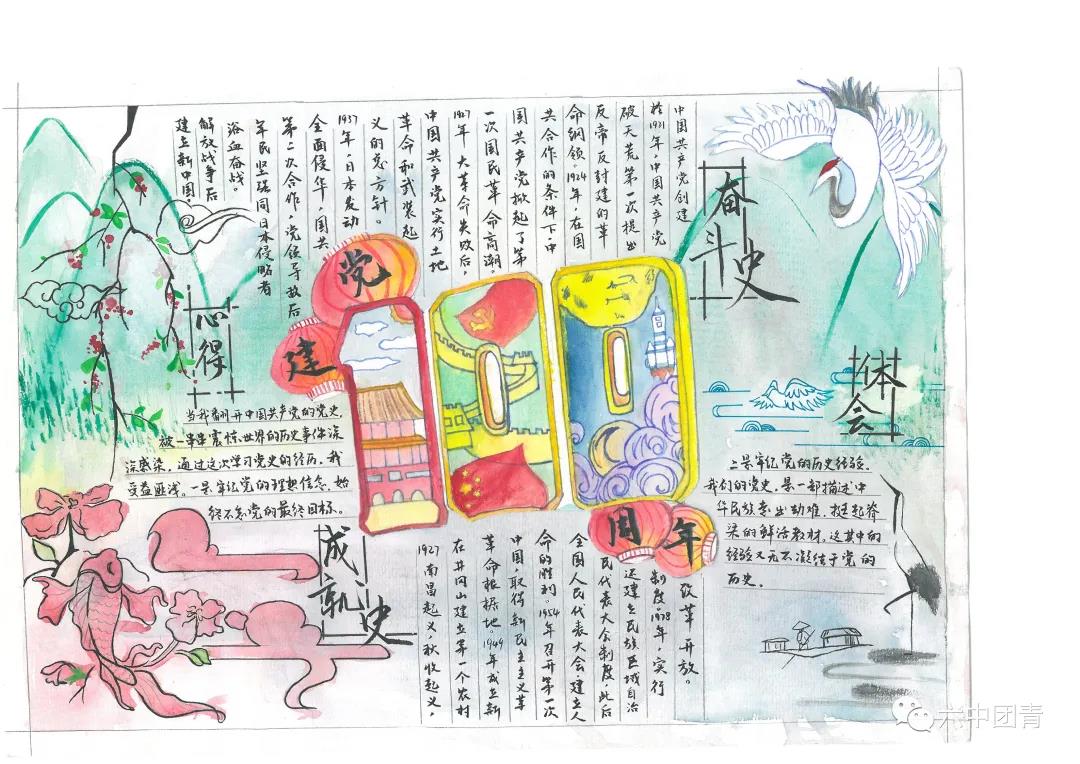 奋斗史
中国共产党创建
於1931年,中国共产党
破天荒第一次提出
反帝反封建的革
命纲领。1924年,在国
共合作的条件下,中
国共产党掀起了第
一次国民革命高潮。
1927年大革命失败后,
中国共产党实行土地
革命和武装起
义的总方针。
1937年,日本发动
全面侵华,国共
第二次合作,党领导敌后
军民坚强同日本侵略者
浴血奋战。
解放战争后
建立新中国.
建党
100
周年
心得
当我翻开中国共产党的党史,
被一串串震惊世界的历史事件深
深感染,通过这次学习党史的经历,我
受益匪浅。一是牢记党的理想信念,始
终不忘党的最终目标。
体会
二是牢记党的历史经验.
我们的党史,是一部描述中
华民族走出劫难,挺起脊
梁的鲜活教材,这其中的
经验又无不凝结于党的
历史.
成就史
1927南昌起义,秋收起义,
在井冈山建立第一个农村
革命根据地。1949年成立新
中国,取得新民主主义革
命的胜利。1954年召开第一次
全国人民代表大会,建立人
民代表大会制度,此后
还建立民族区域自治
制度。1978年,实行
改革开放。
六中团青